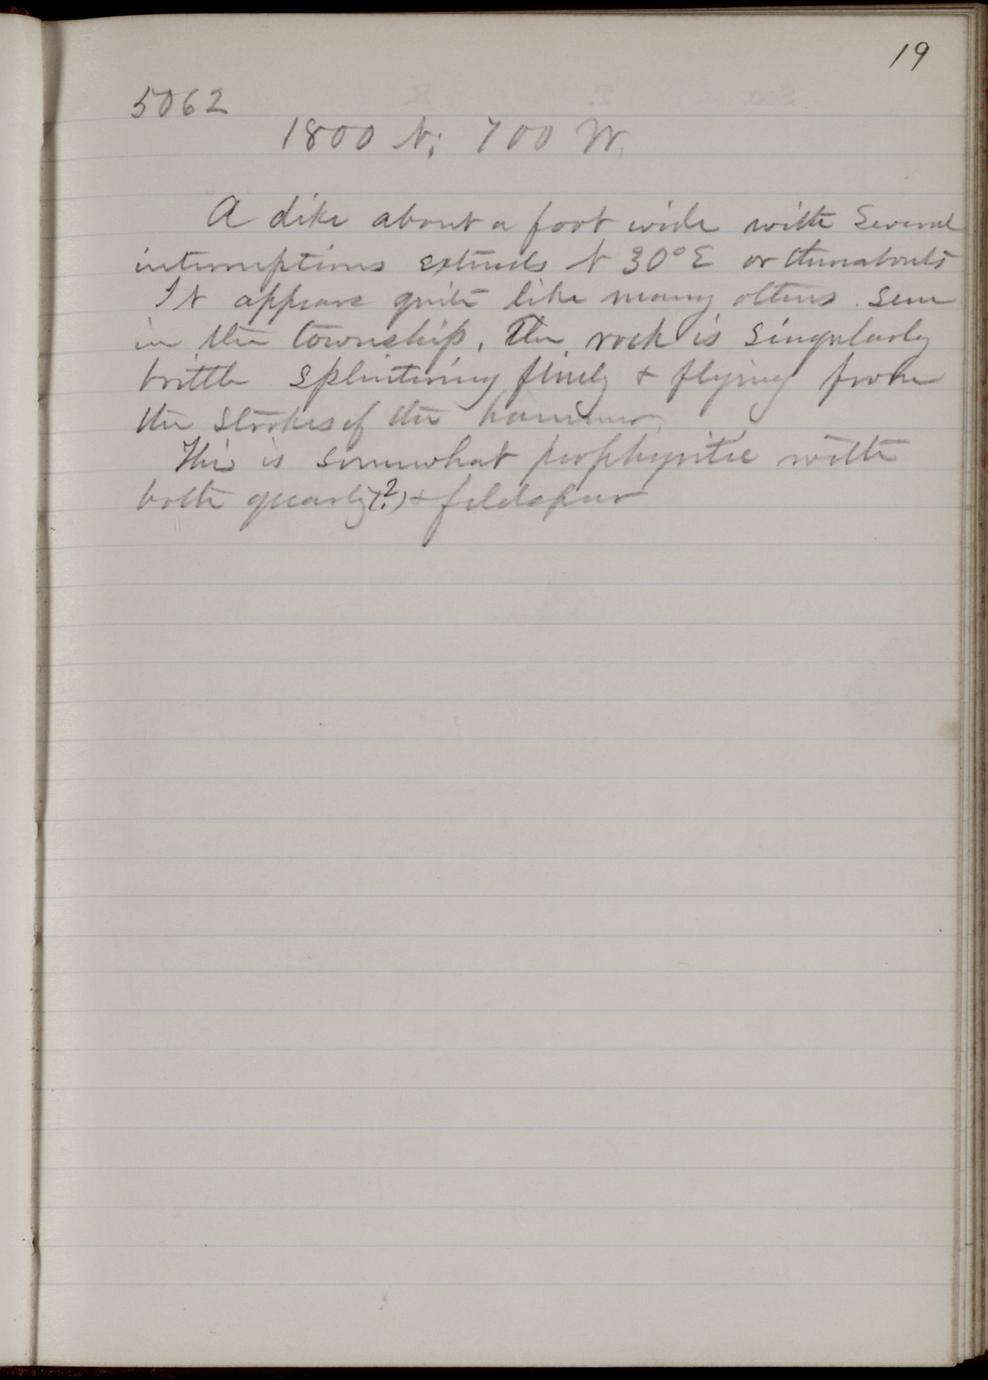 19
5062
1800 N; 700 W.
A dike about a foot wide with several
interruptions extends N 30° E or thereabouts
It appears quite like many others seen
in the township. The rock is singularly
brittle splintering finely & flying from
the strokes of the hammer.
This is somewhat porphyritic with
both quartz(?) & feldspar